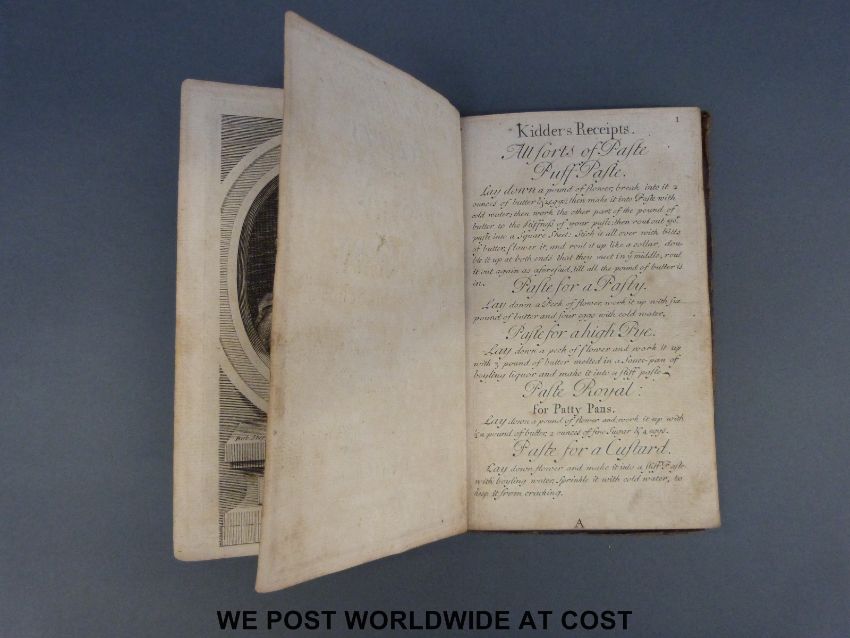 1
Kidder's Receipts.
All sorts of Paste
Puff Paste.
Lay down a pound of flower, break into it 2
ounces of butter & 2 eggs; then make it into Paste with
cold water; then work the other part of the pound of
butter to the stiffness of your paste; then roul out yo.r
paste into a Square Sheet: Stick it all over with bitts
of butter, flower it, and roul it up like a collar, dou-
ble it up at both ends that they meet in y.e middle, roul
it out again as aforesaid, till all the pound of butter is
in.
Paste for a Pasty.
Lay down a Peck of flower, work it up with six
pound of butter and four eggs with cold water.
Paste for a high Pye.
Lay down a peck of flower and work it up
with 3 pound of butter melted in a Sauce-pan of
boyling liquor and make it into a stiff paste
Paste Royal:
for Patty Pans.
Lay down a pound of flower and work it up with
½ a pound of butter, 2 ounces of fine Sugar & 4 eggs.
Paste for a Custard.
Lay down flower and make it into a stiff Paste
with boyling water, sprinkle it with cold water, to
keep it from cracking.
A
WE POST WORLDWIDE AT COST